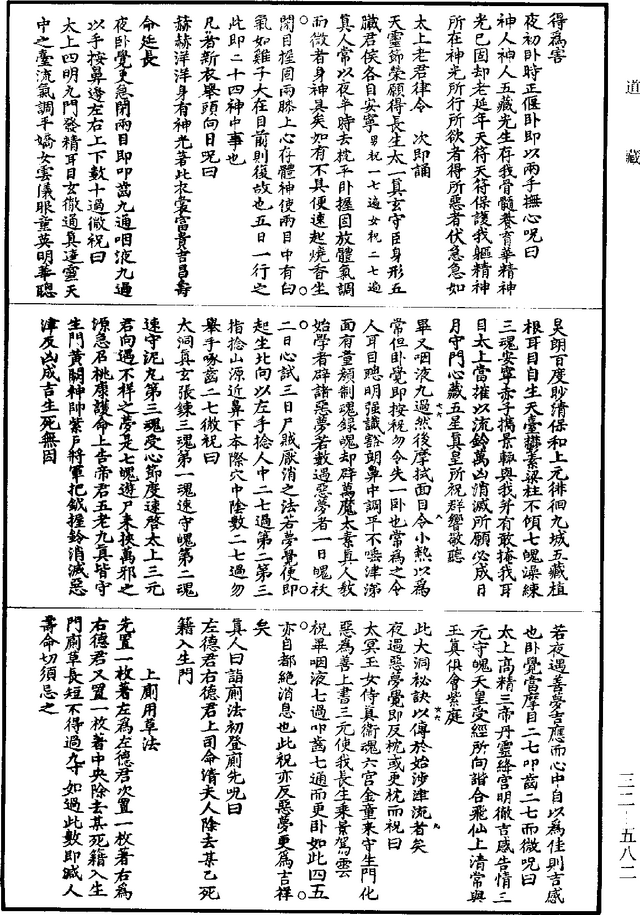 道藏
得為害
夜初卧時正偃卧即以兩手撫心呪曰
神人神人五藏先生存我骨髓養育華精神
光已固却老延年天符天符保護我軀精神
所在神光所行所欲者得所惡者伏急急如
太上老君律令　次即誦
天靈節榮願得長生太一真玄守臣身形五
臟君侯各自安寧男祝一七遍女祝二七遍
真人常以夜半時去枕平卧握固放體氣調
而微者身神具矣如有不具便速起燒香坐
閉目握固兩膝上心存體神使兩目中有白
氣如雞子大在目前則復故也五日一行之
此即二十四神中事也
凡着新衣舉頭向日呪曰
赫赫洋洋身有神光著此衣裳富貴吉昌壽
命延長
夜卧覺更急閉兩目即叩齒九通咽液九過
以手按鼻邊左右上下數十過微祝曰
太上四明九門發精耳目玄徹通真達靈天
中之臺流氣調平嬌女雲儀眼童英明華聰
晃朗百度眇清保和上元徘徊九城五藏植
根耳目自生天臺鬱素梁柱不傾七魄澡練
三魂安寧赤子携景輒與我并有敢掩我耳
目太上當摧以流鈴萬凶消滅所願必成日
月守門心藏五星真皇所祝群響敬聽
畢又咽液九過然後摩拭面目令小熱以為
常但卧覺即按祝勿令失一卧也常為之令
人耳目聰明强識豁朗鼻中調平不唾津涕
面有童顏制魂錄魄却辟萬魔太素真人教
始學者辟諸惡夢若數過惡夢者一日魄妖
二日心試三日尸賊厭消之法若夢覺便即
起坐北向以左手捻人中二七過第二第三
指捻山源近鼻下本際穴中陰數二七過勿
舉手啄齒二七微祝曰
太洞真玄張鍊三魂第一魂速守魄第二魂
速守泥丸第三魂受心節度速啓太上三元
君向遇不祥之夢是七魄遊尸來挾萬邪之
源急召桃康護命上告帝君五老九真皆守
生門黄闕神帥紫戶將軍把鉞握鈴消滅惡
津反凶成吉生死無因
若夜遇善夢吉應而心中自以為佳則吉感
也卧覺當摩目二七叩齒二七而微呪曰
太上高精三帝丹靈絳宫明徹吉感告情三
元守魄天皇受經所向諧合飛仙上清常與
玉真俱會紫庭
此大洞祕訣以傳於始涉津流者矣
夜遇惡夢覺即反枕或更枕而祝曰
太冥玉女侍真衛魂六宫金童來守生門化
惡為善上書三元使我長生乘景駕雲
祝畢咽液七過叩齒七通而更卧如此四五
亦自都絕消息也此祝亦反惡夢更為吉祥
矣
真人曰詣廁法初登廁先呪曰
左德君右德君上司命清夫人除去某乙死
籍入生門
上廁用草法
先置一枚著左為左德君次置一枚著右為
右德君又置一枚著中央除去某死籍入生
門廁草長短不得過九寸如過此數即減人
壽命切須忌之
三二—五八二